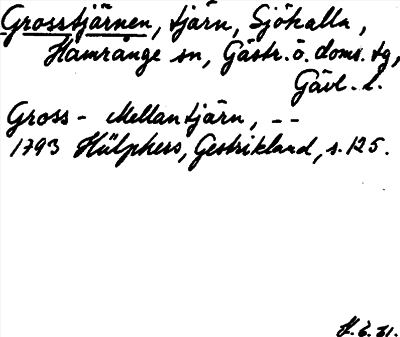 Grosstjärnen, tjärn, Sjökalla,
Hamrånge sn, Gästr. ö. doms. tg,
Gävl. l.
Gross- Mellantjärn, --
1793 Hülphers, Gestrikland, s. 125.